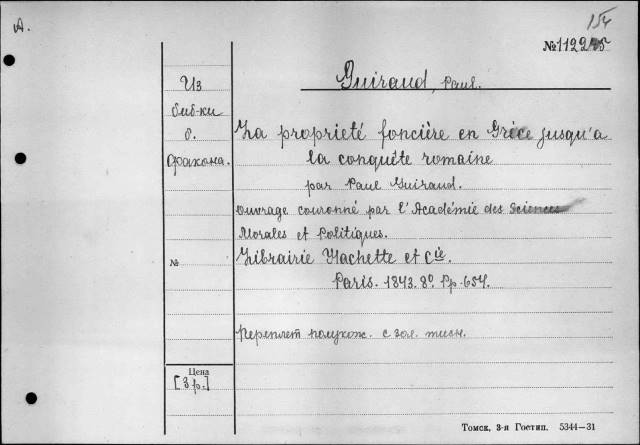 А.
154
№ 112245
Из
биб-ки
б.
Фракона.
Guiraud, Paul.
La proprieté foncière en Grèce jusqu'a
la conquête romaine
par Paul Guiraud.
Ouvrage couronné par l'Académie des Sciences
Morales et Politiques.
№
Librairie Hachette et Cie.
Paris. 1893. 8º. Pp. 654.
Переплет полукож. с зол. тисн.
Цена
[3 р.]
Томск, 3-я Гостип. 5344—31